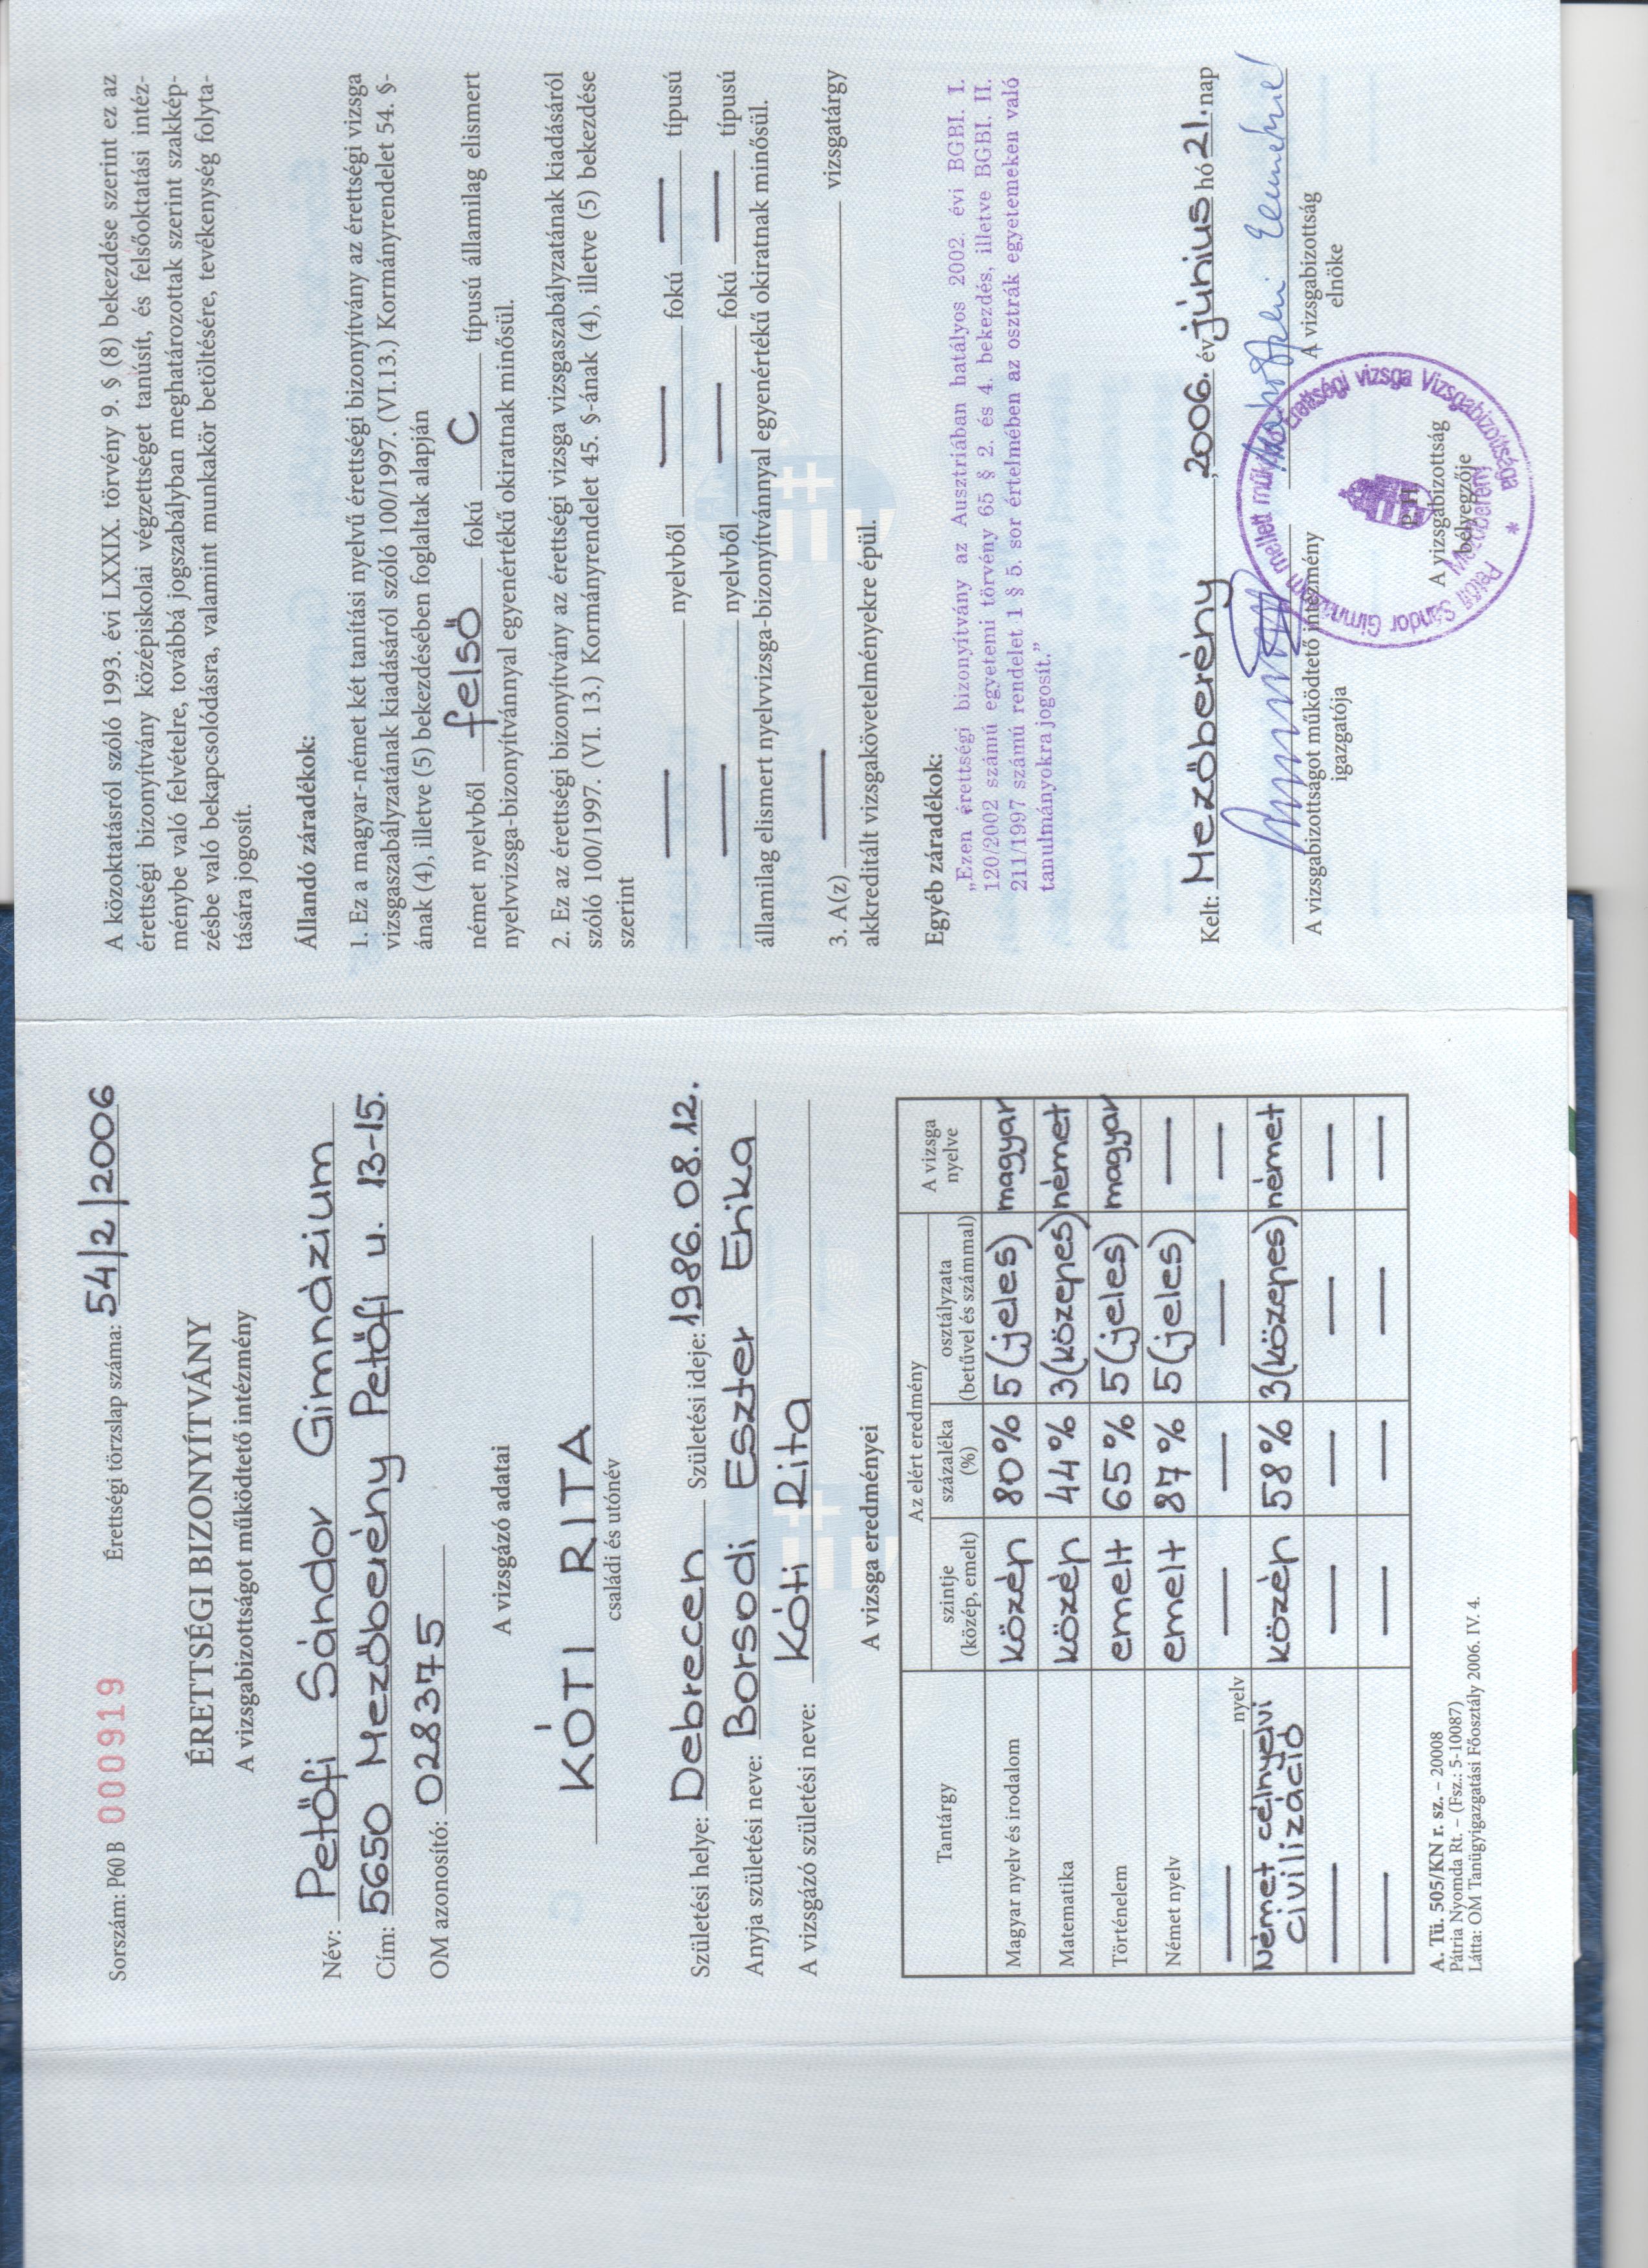 Sorszám: P60 B 000919 Érettségi törzslap száma: 54/2/2006
ÉRETTSÉGI BIZONYÍTVÁNY
A vizsgabizottságot működtető intézmény
Név: Petőfi Sándor Gimnázium
Cím: 5650 Mezőberény Petőfi u. 13-15.
OM azonosító: 028375
A vizsgázó adatai
KÓTI RITA
családi és utónév
Születési helye: Debrecen Születési ideje: 1986. 08. 12.
Anyja születési neve: Borsodi Eszter Erika
A vizsgázó születési neve: Kóti Rita
A vizsga eredményei
Tantárgy
Az elért eredmény
szintje
(közép, emelt)
százaléka
(%)
osztályzata
(betűvel és számmal)
A vizsga
nyelve
Magyar nyelv és irodalom közép 80% 5 (jeles) magyar
Matematika közép 44% 3 (közepes) német
Történelem emelt 65% 5 (jeles) magyar
Német nyelv emelt 87% 5 (jeles) —
— nyelv — — — —
Német célnyelvi
civilizáció közép 58% 3 (közepes) német
— — — — —
— — — — —
A. Tü. 505/KN r. sz. – 20008
Pátria Nyomda Rt. – (Fsz.: 5-10087)
Látta: OM Tanügyigazgatási Főosztály 2006. IV. 4.
A közoktatásról szóló 1993. évi LXXIX. törvény 9. § (8) bekezdése szerint ez az
érettségi bizonyítvány középiskolai végzettséget tanúsít, és felsőoktatási intéz-
ménybe való felvételre, továbbá jogszabályban meghatározottak szerint szakkép-
zésbe való bekapcsolódásra, valamint munkakör betöltésére, tevékenység folyta-
tására jogosít.
Állandó záradékok:
1. Ez a magyar-német két tanítási nyelvű érettségi bizonyítvány az érettségi vizsga
vizsgaszabályzatának kiadásáról szóló 100/1997. (VI.13.) Kormányrendelet 54. §-
ának (4), illetve (5) bekezdésében foglaltak alapján
német nyelvből felső fokú C típusú államilag elismert
nyelvvizsga-bizonyítvánnyal egyenértékű okiratnak minősül.
2. Ez az érettségi bizonyítvány az érettségi vizsga vizsgaszabályzatának kiadásáról
szóló 100/1997. (VI. 13.) Kormányrendelet 45. §-ának (4), illetve (5) bekezdése
szerint
— nyelvből — fokú — típusú
— nyelvből — fokú — típusú
államilag elismert nyelvvizsga-bizonyítvánnyal egyenértékű okiratnak minősül.
3. A(z) — vizsgatárgy
akkreditált vizsgakövetelményekre épül.
Egyéb záradékok:
„Ezen érettségi bizonyítvány az Ausztriában hatályos 2002. évi BGBI. I.
120/2002 számú egyetemi törvény 65 § 2. és 4. bekezdés, illetve BGBI. II.
211/1997 számú rendelet 1 § 5. sor értelmében az osztrák egyetemeken való
tanulmányokra jogosít.”
Kelt: Mezőberény, 2006. év június hó 21. nap
A vizsgabizottságot működtető intézmény
igazgatója
A vizsgabizottság
elnöke
P. H.
A vizsgabizottság
bélyegzője
Petőfi Sándor Gimnázium mellett működő Érettségi vizsga Vizsgabizottsága *
Mezőberény